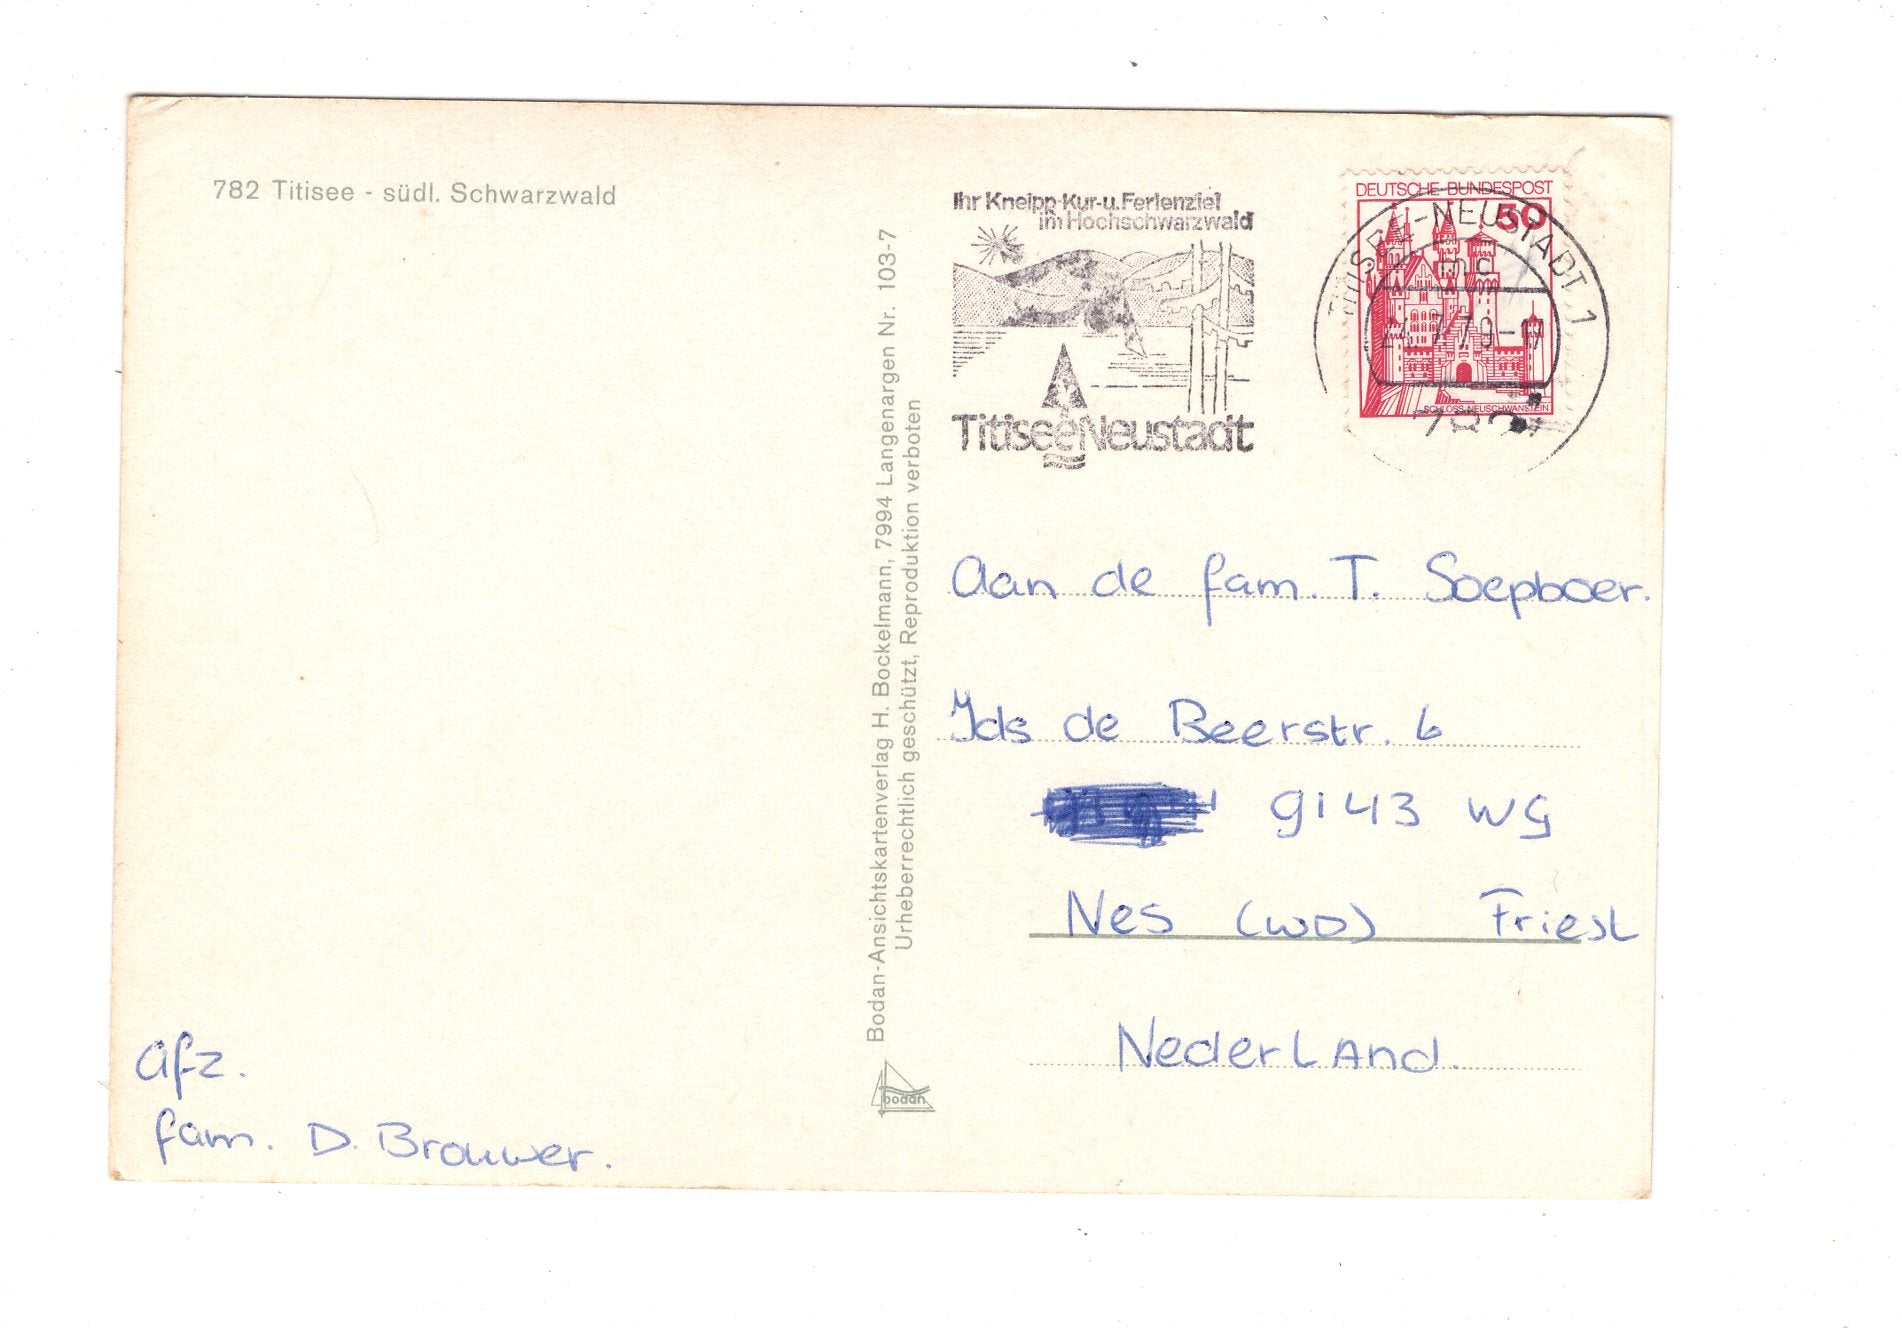 782 Titisee - südl. Schwarzwald
Ihr Kneipp-Kur-u. Ferienziel
im Hochschwarzwald
Titisee Neustadt
DEUTSCHE BUNDESPOST
50
SCHLOSS NEUSCHWANSTEIN
TITISEE-NEUSTADT 1
mc
24.7.79-17
782
Bodan-Ansichtskartenverlag H. Bockelmann, 7994 Langenargen Nr. 103-7
Urheberrechtlich geschützt, Reproduktion verboten
bodan
Aan de fam. T. Soepboer.
Ids de Beerstr. 6
9143 WG
Nes (WD) Friesl
Nederland.
Afz.
fam. D. Brouwer.